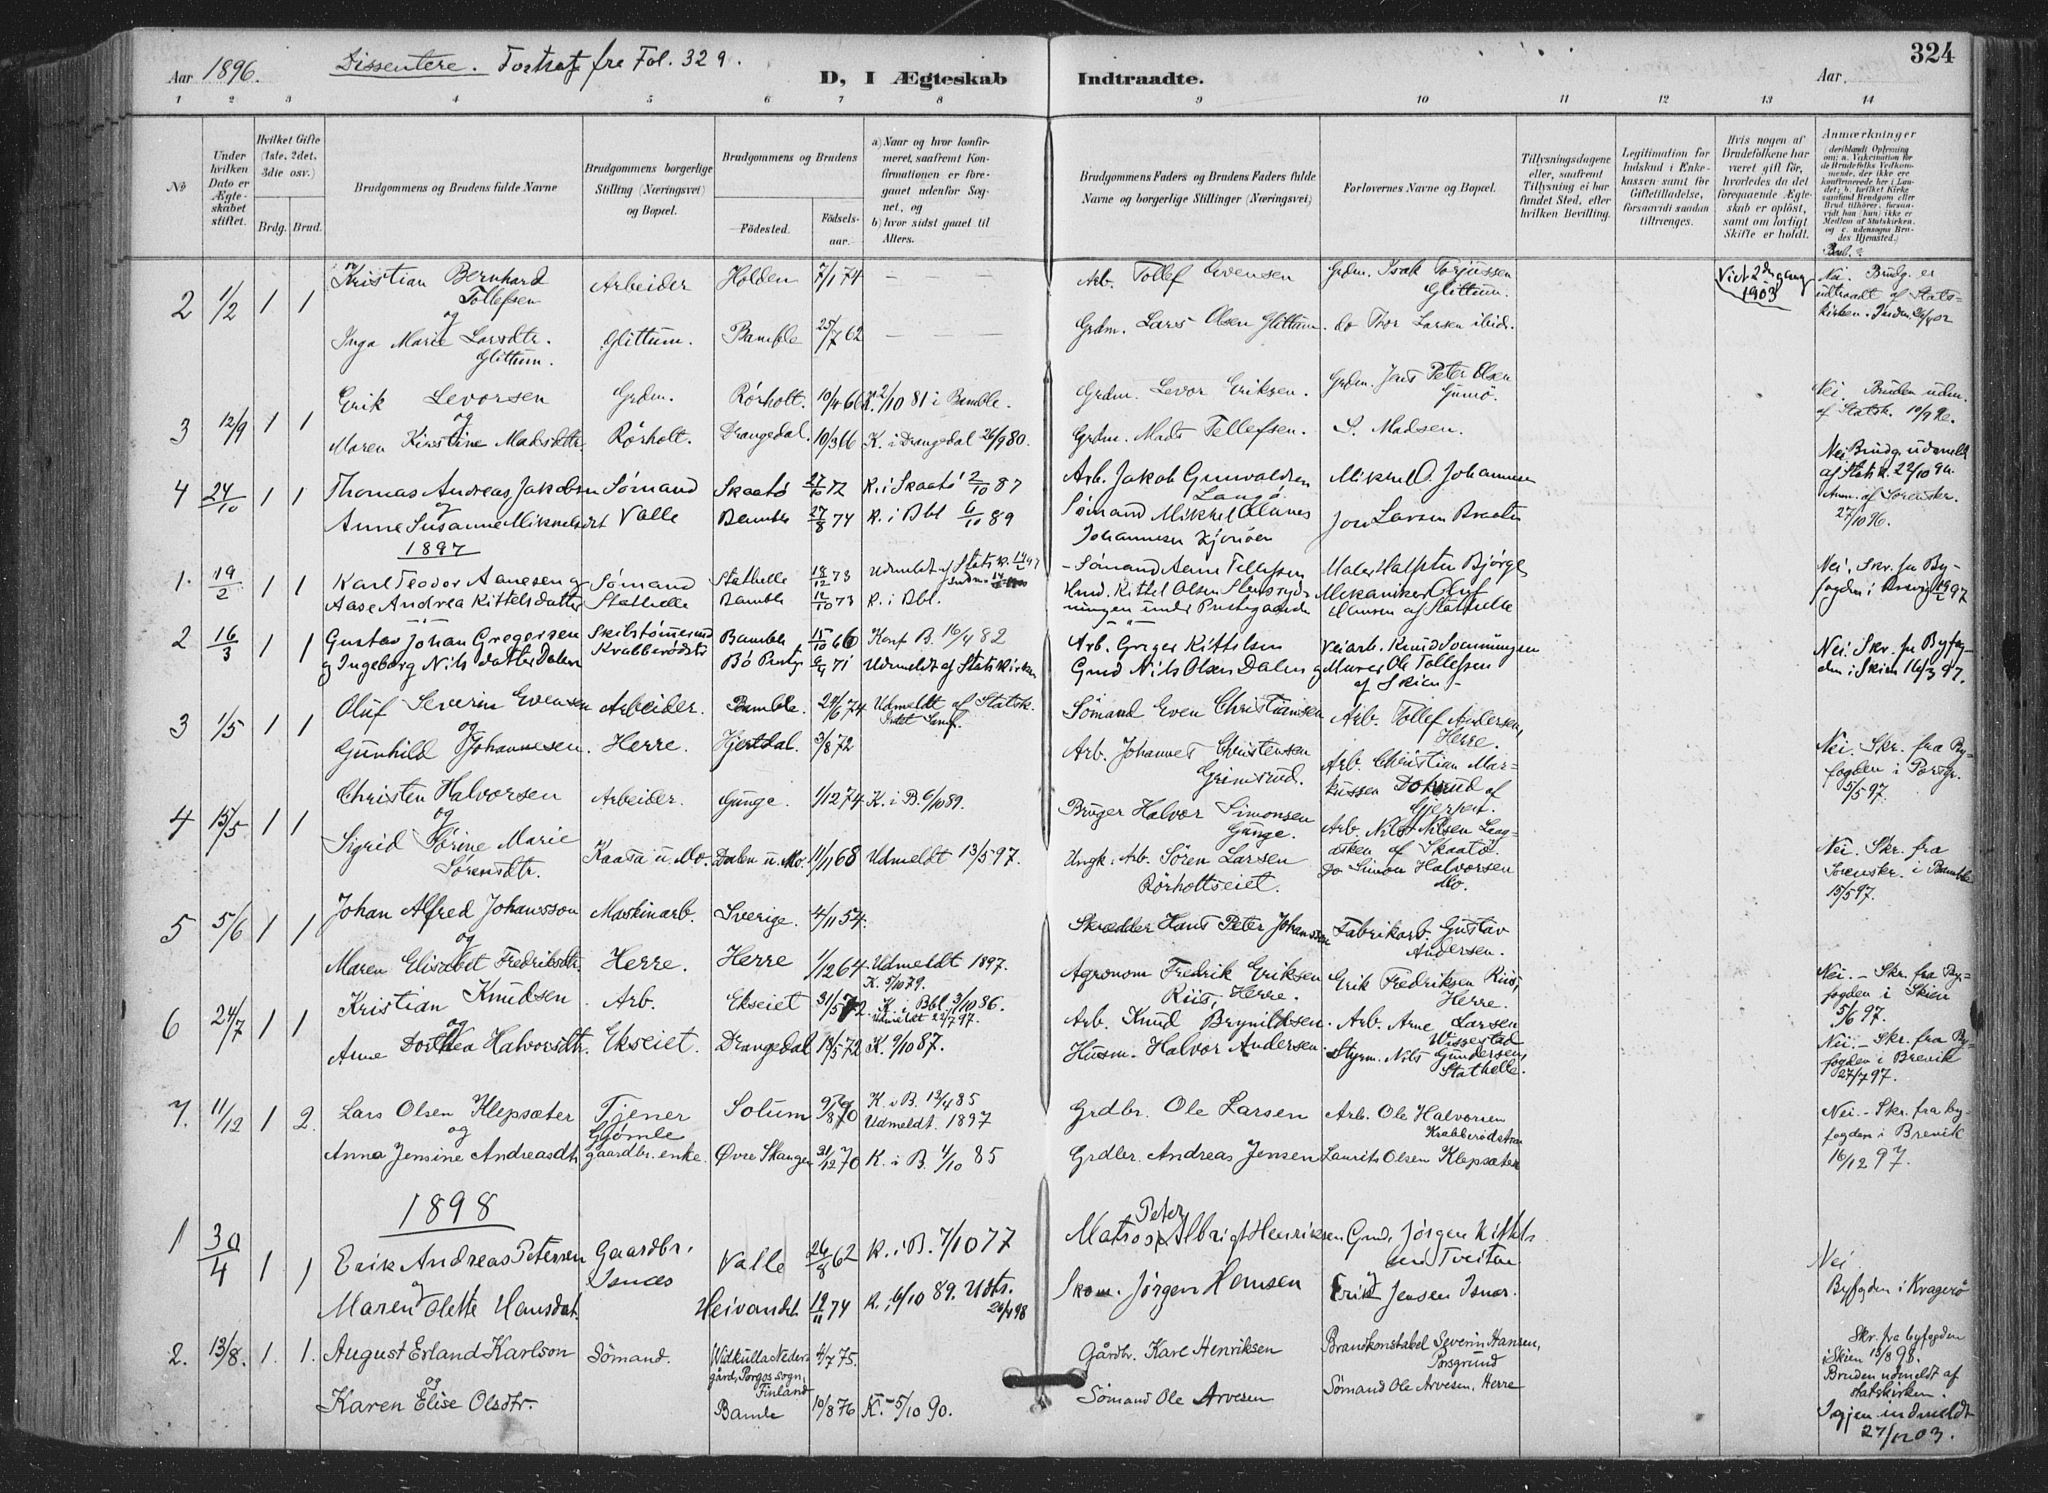 324
Aar 1896. Dissentere. Fortsat fra Fol. 329.
D, I Ægteskab Indtraadte.
Aar.
1 2 3 4 5 6 7 8 9 10 11 12 13 14
No
Under hvilken Dato er Ægteskabet stiftet.
Hvilket Gifte (1ste, 2det, 3die osv.)
Brdg. Brud.
Brudgommens og Brudens fulde Navne
Brudgommens borgerlige Stilling (Næringsvei) og Bopæl.
Brudgommens og Brudens
Fødested.
Fødselsaar.
a) Naar og hvor konfirmeret, saafremt Konfirmationen er foregaaet udenfor Sognet, og
b) hvor sidst gaaet til Alters.
Brudgommens Faders og Brudens Faders fulde Navne og borgerlige Stillinger (Næringsvei)
Forlovernes Navne og Bopæl.
Tillysningsdagene eller, saafremt Tillysning ei har fundet Sted, efter hvilken Bevilling.
Legitimation for Indskud i Enkekassen samt for Giftetilladelse, forsaavidt saadan tiltrænges.
Hvis nogen af Brudefolkene har været gift før, hvorledes da det foregaaende Ægteskab er opløst, samt om lovligt Skifte er holdt.
Anmærkninger
2 1/2 1 1
Kristian Bernhard Tollefsen
og
Inga Marie Larsdtr. Glittum.
Arbeider
Glittum.
Holden 7/1 74
Bamble 25/7 62
Arb. Tollef Evensen
Grdm. Lars Olsen Glittum.
Grdm. Isak Torjussen Glittum.
do Thor Larsen ibid.
Viet 2den gang 1903
Nei. Brudg. er udtraadt af Statskirken.
3 12/9 1 1
Erik Levorsen
og
Maren Kirstine Madsdtr.
Grdm.
Rørholt.
Rørholt. 10/4 66
Drangedal. 10/3 66
K. 2/10 81 i Bamble.
K. i Drangedal 26/9 80.
Grdm. Levor Eriksen.
Grdm. Mads Tellefsen.
Grdm. Jens Peter Olsen
S. Madsen.
Nei. Bruden udm. af Statsk. 10/9 96.
4 24/10 1 1
Thomas Andreas Jakobsen
og
Anne Susanne Mikkelsdt
Sømand
Valle
Skaatø 27/10 72
Bamble 27/8 74
K. i Skaatø 2/10 87
K. i Bbl 6/10 89
Arb. Jakob Gunvaldsen Langø.
Sømand Mikkel Hanes Johannesen
Mikkel O. Johannesen
Jon Larsen Braaten
Nei. Brudg. udmeldt af Statsk. 22/10 96.
Anm. af Sorenskr. 27/10 96.
1897
1. 19/2 1 1
Karl Teodor Aanesen og
Aase Andrea Kittelsdatter
Sømand
Stathelle
Stathelle 18/12 73
Bamble 12/10 73
Udmeldt af Statsk.
K. i Bbl.
Sømand Aane Tellefsen
Husm. Kittel Olsen
Maler Halsten Bjørge
Mekaniker Oluf Hansen af Stathelle
Nei. Skr. fra Byfogden i Brevig 19/2 97
2 16/3 1 1
Gustav Johan Gregersen
og Ingeborg Nilsdatter Dalen
Skibstømmermd
Krabberødstr
Bamble 15/10 66
Bø Prstg 9/4 71
Konf B. 16/4 82
Udmeldt af Statskirken
Arb. Greger Kittilsen
Gmd Nils Olsen Dalen
Veiarb. Knud Svenningsen
og Murer Ole Tollefsen af Skien
Nei. Skr. fra Byfogden i Skien 16/3 97.
3 1/5 1 1
Oluf Severin Evensen
og
Gunhild Johannesen.
Arbeider.
Herre.
Bamble. 24/6 74
Hjertdal. 3/8 72
Udmeldt af Statsk.
Sømand Even Christiansen
Arb. Johannes Christensen Grimsrud.
Arb. Tollef Andersen, Herre.
Arb. Christian Markussen af Gjerpen.
Nei. Skr. fra Byfogden i Porsgr. 5/5 97.
4 15/5 1 1
Christen Halvorsen
og
Sigrid Tørine Marie Sørensdtr.
Arbeider.
Kaasa u. Mo.
Gunge. 1/12 74
Dalen u. Mo 11/11 68
K. i B. 6/10 89.
Udmeldt 13/5 97.
Bruger Halvor Simonsen Gunge.
Ungk. Arb. Sören Larsen Rörholtseiet.
Arb. Nils Nilsen af Skaatø.
do Simon Halvorsen Mo.
Nei. Skr. fra Sorenskr. i Bamble 15/5 97.
5 5/6 1 1
Johan Alfred Johansson
og
Maren Elisabet Fredriksdtr.
Maskinarb.
Herre.
Sverige. 4/11 54.
Herre 1/12 64
Udmeldt 1897.
K. 5/10 79.
Skrædder Hans Peter Johansson
Agronom Fredrik Eriksen Riis, Herre.
Fabrikarb. Gustav Andersen.
Erik Fredriksen Riis, Herre.
Nei. - Skr. fra Byfogden i Skien 5/6 97.
6 24/7 1 1
Kristian Knudsen
og
Anne Dorthea Halvorsdtr.
Arb.
Ekseiet.
Ekseiet 31/5 72.
Drangedal 18/5 72
K. i Bbl 3/10 86.
Udmeldt 22/7 97.
K. 9/10 87.
Arb. Knud Brynildsen.
Husm. Halvor Andersen.
Arb. Arne Larsen
Styrm. Nils Gundersen, Stathelle.
Nei. - Skr. fra Byfogden i Brevik 27/7 97.
7. 11/12 1 2.
Lars Olsen Klepsæter
og
Anna Jensine Andreasdtr
Tjener
Gjømle
gaardbr. enke.
Solum 9/8 70
Øvre Skangen 31/12 70
K. i B. 13/4 85
Udmeldt. 1897
K. i B. 4/10 85
Grdbr. Ole Larsen
Grdbr. Andreas Jensen
Arb. Ole Halvorsen Krabberødstran
Laurits Olsen Klepsæter
Nei - Skr. fra byfogden i Brevik 16/12 97.
1898
1 30/4 1 1
Erik Andreas Petersen
og
Maren Olette Hansdat.
Gaardbr.
Isnæs
Valle 26/8 62
Heivandet. 19/11 74
K. i B. 7/10 77
K. 6/10 89. Udtr. 26/4 98
Matros Peter Albrigt Henriksen
Skom. Jørgen Hansen
Gmd. Jörgen Kittels
Tveiten
Erik Jensen Isnes.
Nei
Byfogden i Kragerø
2. 13/8. 1. 1.
August Erland Karlson
og
Karen Elise Olsdtr.
Sømand.
Widkulla Nedergård, Porgos sogn, Finland 4/7 75.
Bamle 10/8 76
K. 5/10 90.
Gårdbr. Karl Henriksen
Sömand Ole Arvesen
Brandkonstabel Severin Hansen, Porsgrund
Sömand Ole Arvesen, Herre
Skr. fra byfogden i Skien 13/8 98.
Bruden udmeldt af statskirken.
Igjen indmeldt 27/12 03.